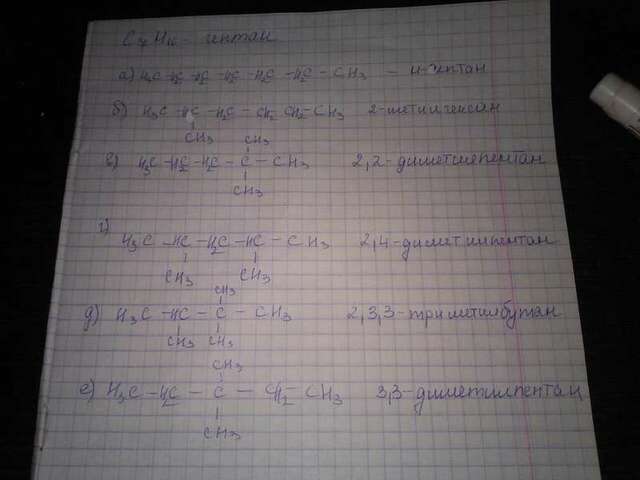 C7H16 - гептан
а) H3C - H2C - H2C - H2C - H2C - H2C - CH3 - н-гептан
б) H3C - HC - H2C - CH2 - CH2 - CH3 2-метилгексан
CH3 CH3
в) H3C - H2C - H2C - C - CH3 2,2-диметилпентан
CH3
г) H3C - HC - H2C - HC - CH3 2,4-диметилпентан
CH3 CH3
CH3
д) H3C - HC - C - CH3 2,3,3-триметилбутан
CH3 CH3
CH3
е) H3C - H2C - C - CH2 - CH3 3,3-диметилпентан
CH3